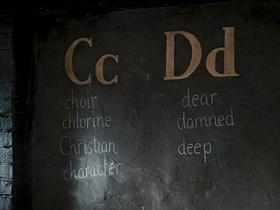 Cc Dd
choir
chlorine
Christian
character
dear
damned
deep